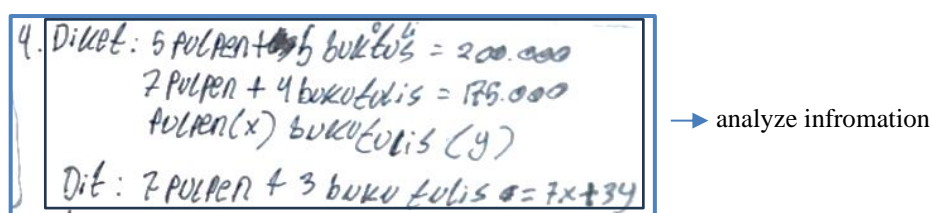 4. Diket: 5 pulpen + 5 buku tulis = 200.000
7 pulpen + 4 buku tulis = 175.000
pulpen(x) buku tulis (y)
Dit: 7 pulpen + 3 buku tulis = 7x+3y
analyze infromation